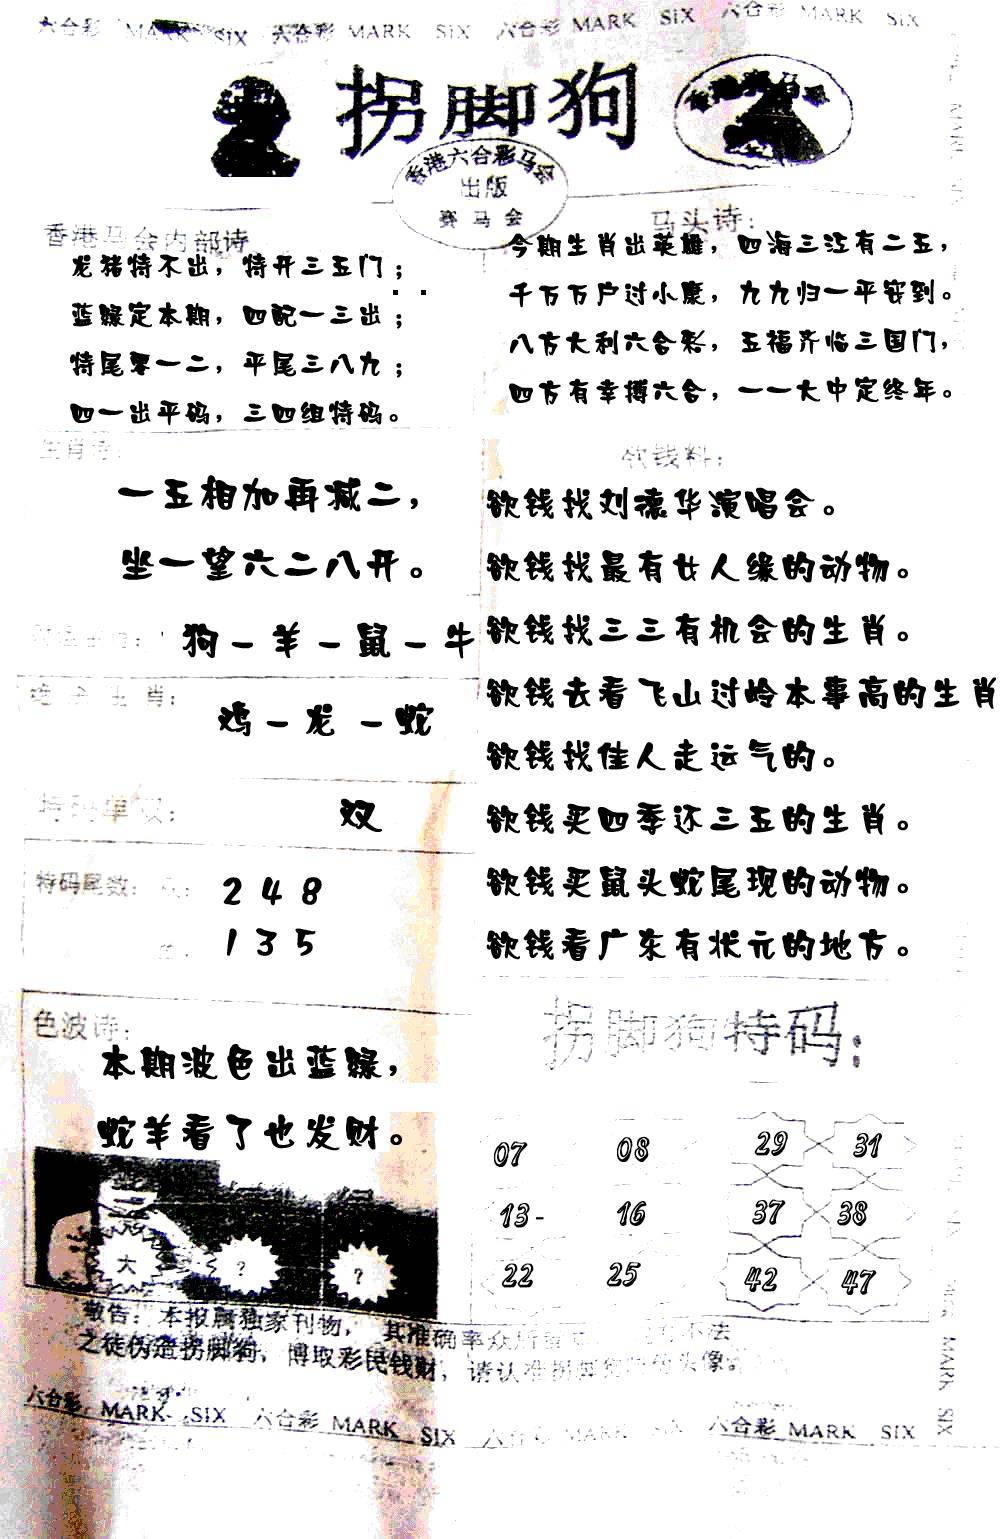 六合彩 MARK SIX 六合彩 MARK SIX 六合彩 MARK SIX 六合彩 MARK SIX
拐脚狗
香港六合彩马会
出版
赛马会
香港马会内部诗
龙猪特不出，特开三五门；
蓝绿定本期，四配一三出；
特尾零一二，平尾三八九；
四一出平码，三四组特码。
马头诗：
今期生肖出英雄，四海三江有二五，
千万万户过小康，九九归一平安到。
八方大利六合彩，五福齐临三国门，
四方有幸搏六合，一一大中定终年。
生肖诗：
一五相加再减二，
坐一望六二八开。
狗－羊－鼠－牛
生肖：
鸡－龙－蛇
特码单双：
双
特码尾数：
2 4 8
1 3 5
欲钱料：
欲钱找刘德华演唱会。
欲钱找最有女人缘的动物。
欲钱找三三有机会的生肖。
欲钱去看飞山过岭本事高的生肖
欲钱找佳人走运气的。
欲钱买四季还三五的生肖。
欲钱买鼠头蛇尾现的动物。
欲钱看广东有状元的地方。
色波诗：
本期波色出蓝绿，
蛇羊看了也发财。
大 ? ?
拐脚狗特码：
07 08 29 31
13- 16 37 38
22 25 42 47
敬告：本报属独家刊物，其准确率众所 不法
之徒伪造拐脚狗，博取彩民钱财，请认准拐脚 头像
六合彩 MARK SIX 六合彩 MARK SIX 六合彩 MARK SIX 六合彩 MARK SIX
MARK SIX